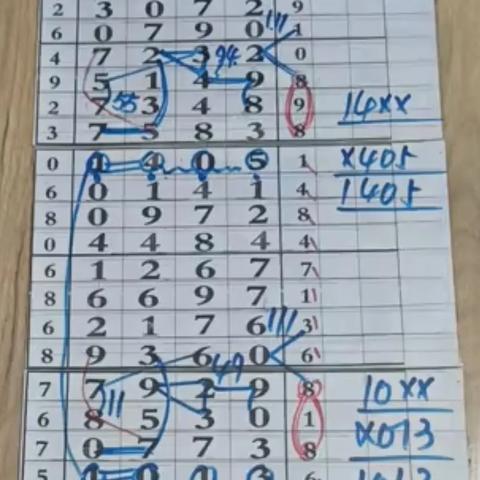 2 3 0 7 2 9
6 0 7 9 0 111 1
4 7 2 3 2 0
94
9 5 1 4 9 8
2 7 55 3 4 8 9 14xx
3 7 5 8 3 8
0 1 4 0 5 1 x405
6 0 1 4 1 4 1405
8 0 9 7 2 8
0 4 4 8 4 4
6 1 2 6 7 7
8 6 6 9 7 1
6 2 1 7 6 111 3
8 9 3 6 0 6
49
7 7 9 2 9 8 10xx
111
6 8 5 3 0 1 x013
7 0 7 7 3 8
5 1 0 1 3 6 1013